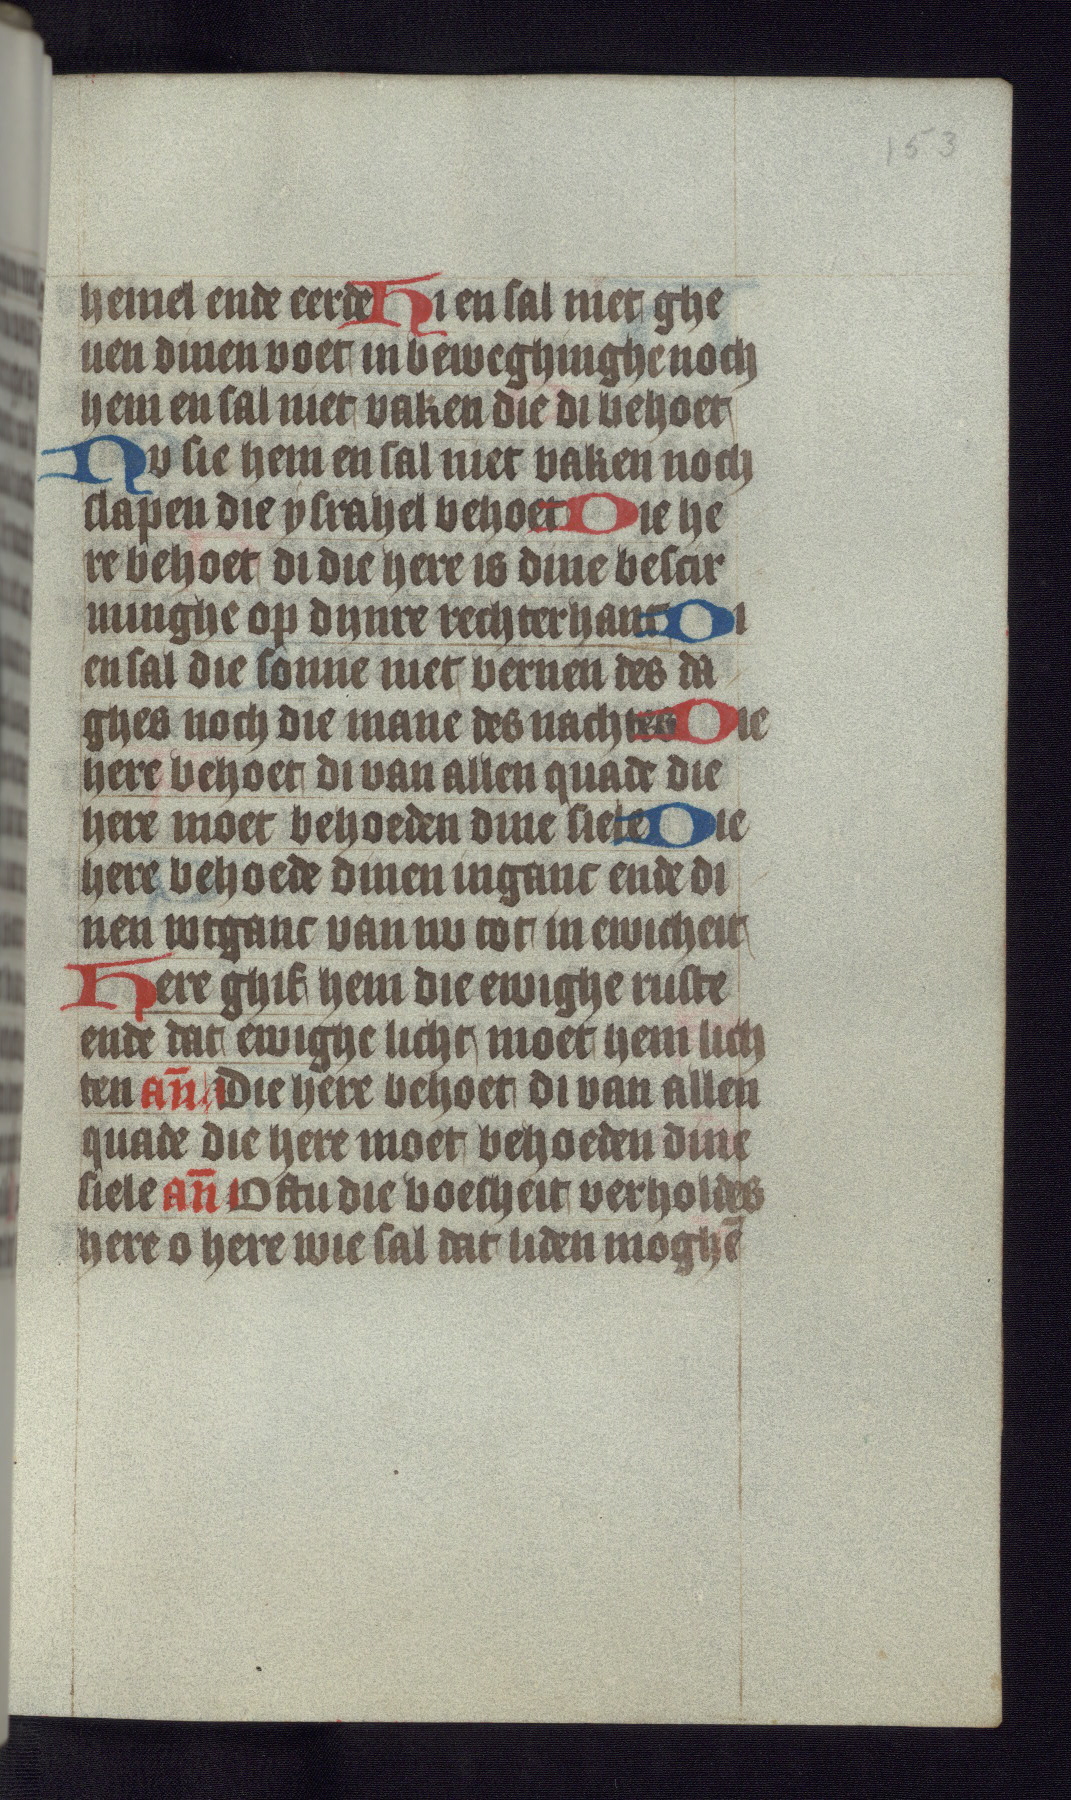 153
hemel ende eerde Hi en sal niet ghe
uen dinen voet in beweghinghe noch
hem en sal niet vaken die di behoet
Nv sie hem en sal niet vaken noch
slapen die ysrahel behoet Die he
re behoet di die here is dine bescir
minghe op dynre rechterhant Di
en sal die sonne niet bernen des da
ghes noch die mane des nachtes Die
here behoet di van allen quade die
here moet behoeden dine siele Die
here behoede dinen inganc ende di
nen wtganc van nu tot in ewicheit
Here ghif hem die ewighe ruste
ende dat ewighe licht moet hem lich
ten an̄ Die here behoet di van allen
quade die here moet behoeden dine
siele an̄ Ofstu die boesheit verholdes
here o here wie sal dat liden moghē